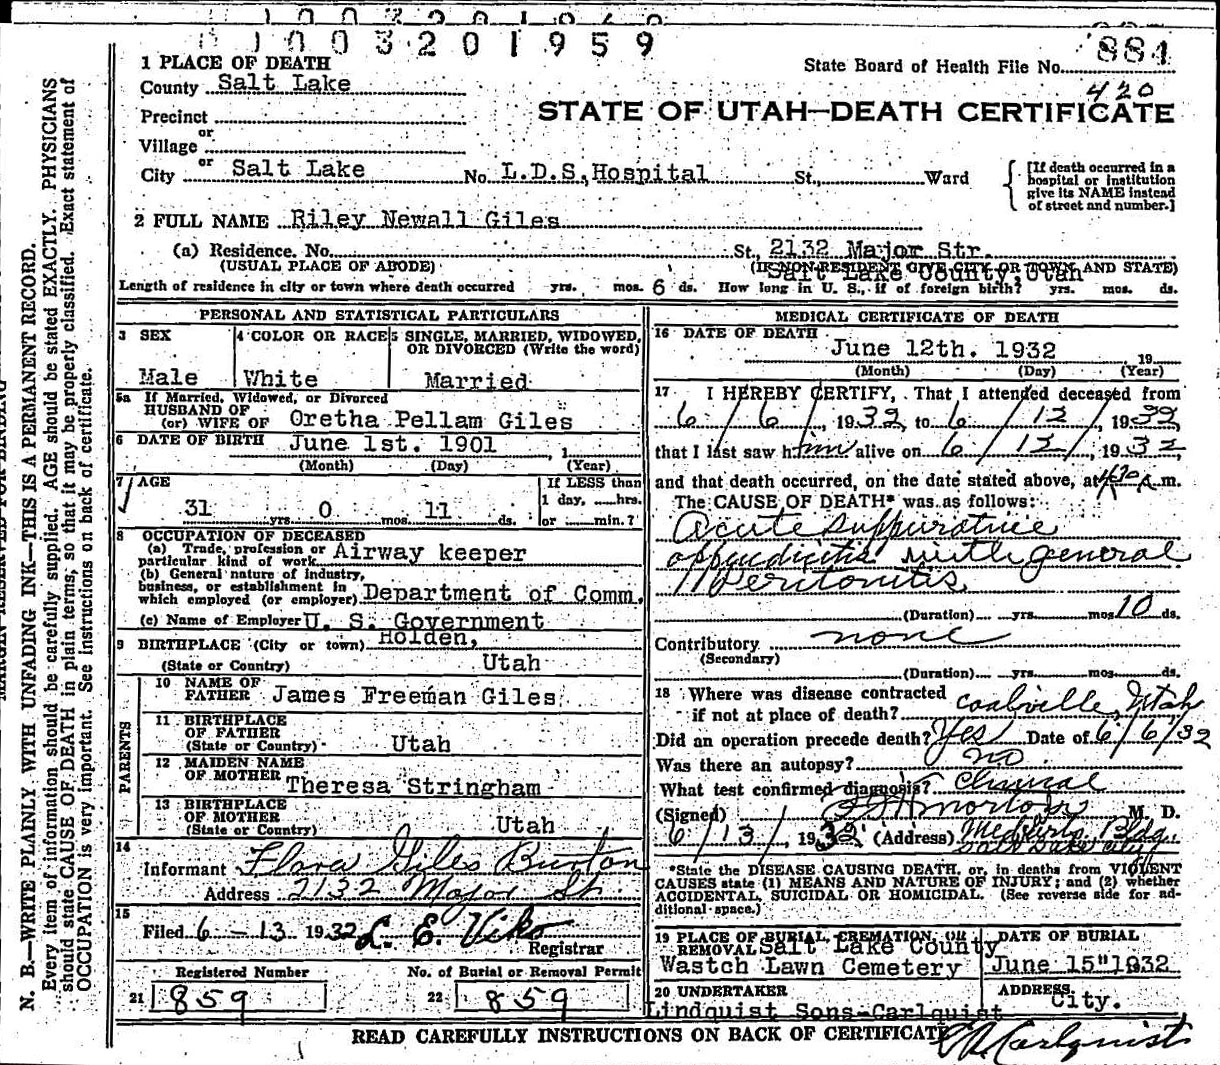 1003201959
884
State Board of Health File No.
420
1 PLACE OF DEATH
County Salt Lake
STATE OF UTAH—DEATH CERTIFICATE
Precinct
or
Village
or
City Salt Lake No. L.D.S. Hospital St., Ward
[If death occurred in a hospital or institution give its NAME instead of street and number.]
2 FULL NAME Riley Newall Giles
(a) Residence. No. St., 2132 Major Str.
(USUAL PLACE OF ABODE) (IF NON-RESIDENT GIVE CITY OR TOWN AND STATE)
Salt Lake County, Utah
Length of residence in city or town where death occurred yrs. mos. 6 ds. How long in U. S., if of foreign birth? yrs. mos. ds.
PERSONAL AND STATISTICAL PARTICULARS
3 SEX
Male
4 COLOR OR RACE
White
5 SINGLE, MARRIED, WIDOWED, OR DIVORCED (Write the word)
Married
5a If Married, Widowed, or Divorced
HUSBAND OF
(or) WIFE OF Oretha Pellam Giles
6 DATE OF BIRTH June 1st. 1901, 1
(Month) (Day) (Year)
7 AGE
31 yrs. 0 mos. 11 ds.
If LESS than
1 day, hrs.
or min.?
8 OCCUPATION OF DECEASED
(a) Trade, profession or
particular kind of work Airway keeper
(b) General nature of industry,
business, or establishment in
which employed (or employer) Department of Comm.
(c) Name of Employer U. S. Government
9 BIRTHPLACE (City or town) Holden,
(State or Country) Utah
PARENTS
10 NAME OF
FATHER James Freeman Giles
11 BIRTHPLACE
OF FATHER
(State or Country) Utah
12 MAIDEN NAME
OF MOTHER Theresa Stringham
13 BIRTHPLACE
OF MOTHER
(State or Country) Utah
14
Informant Flora Giles Burton
Address 2132 Major St.
15
Filed 6-13 1932 L. E. Viko
Registrar
Registered Number
21 859
No. of Burial or Removal Permit
22 859
MEDICAL CERTIFICATE OF DEATH
16 DATE OF DEATH
June 12th. 1932 19
(Month) (Day) (Year)
17 I HEREBY CERTIFY, That I attended deceased from
6/6/, 1932, to 6/12/, 1932,
that I last saw him alive on 6/12/, 1932,
and that death occurred, on the date stated above, at A. m.
The CAUSE OF DEATH* was as follows:
Acute suppurative
appendicitis with general
Peritonitis
(Duration) yrs. mos. 10 ds.
Contributory none
(Secondary)
(Duration) yrs. mos. ds.
18 Where was disease contracted
if not at place of death? Coalville, Utah
Did an operation precede death? Yes Date of 6/6/32
Was there an autopsy? no
What test confirmed diagnosis? Clinical
(Signed) M. D.
6/13/, 1932 (Address) Bldg.
Salt Lake City
*State the DISEASE CAUSING DEATH, or, in deaths from VIOLENT
CAUSES state (1) MEANS AND NATURE OF INJURY; and (2) whether
ACCIDENTAL, SUICIDAL OR HOMICIDAL. (See reverse side for ad-
ditional space.)
19 PLACE OF BURIAL, CREMATION, OR
REMOVAL Salt Lake County
Wastch Lawn Cemetery
DATE OF BURIAL
June 15" 1932
20 UNDERTAKER
Lindquist Sons-Carlquist
ADDRESS
City.
READ CAREFULLY INSTRUCTIONS ON BACK OF CERTIFICATE
Carlquist
N. B.—WRITE PLAINLY WITH UNFADING INK—THIS IS A PERMANENT RECORD.
Every item of information should be carefully supplied. AGE should be stated EXACTLY. PHYSICIANS
should state CAUSE OF DEATH in plain terms, so that it may be properly classified. Exact statement of
OCCUPATION is very important. See instructions on back of certificate.